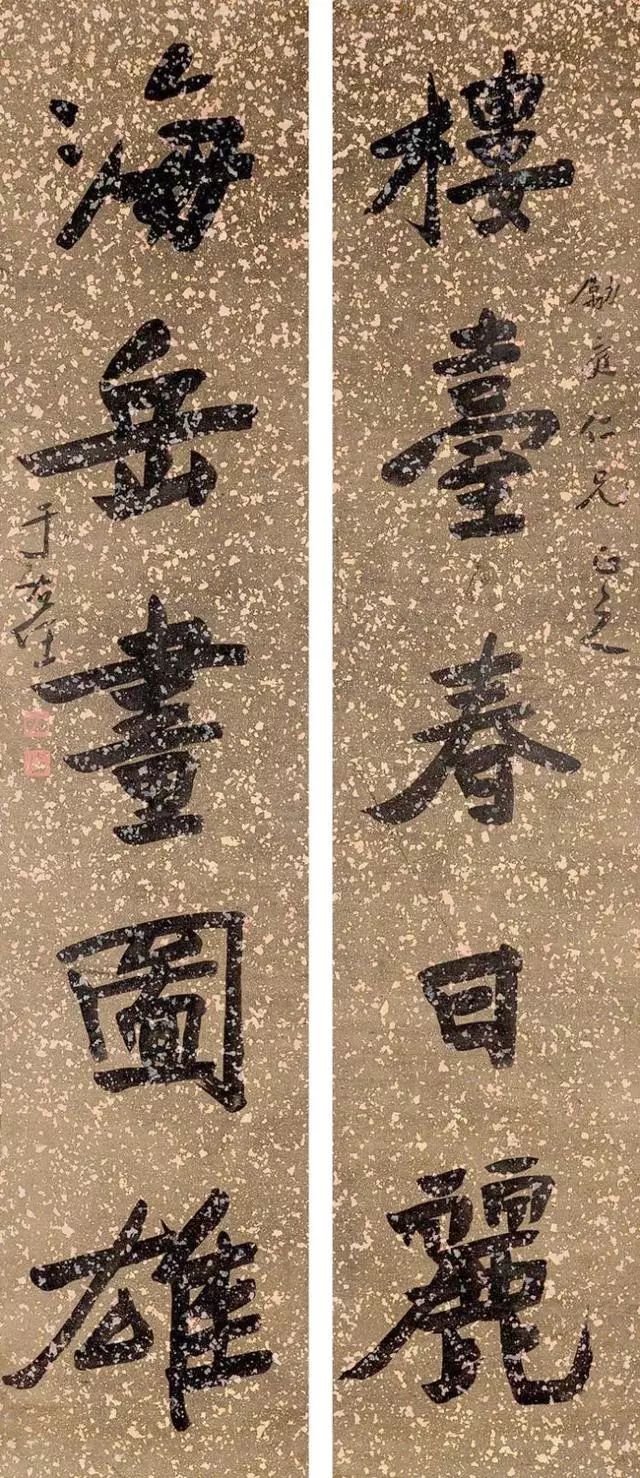 樓臺春日麗
庭仁兄正之
海岳畫圖雄
于右任